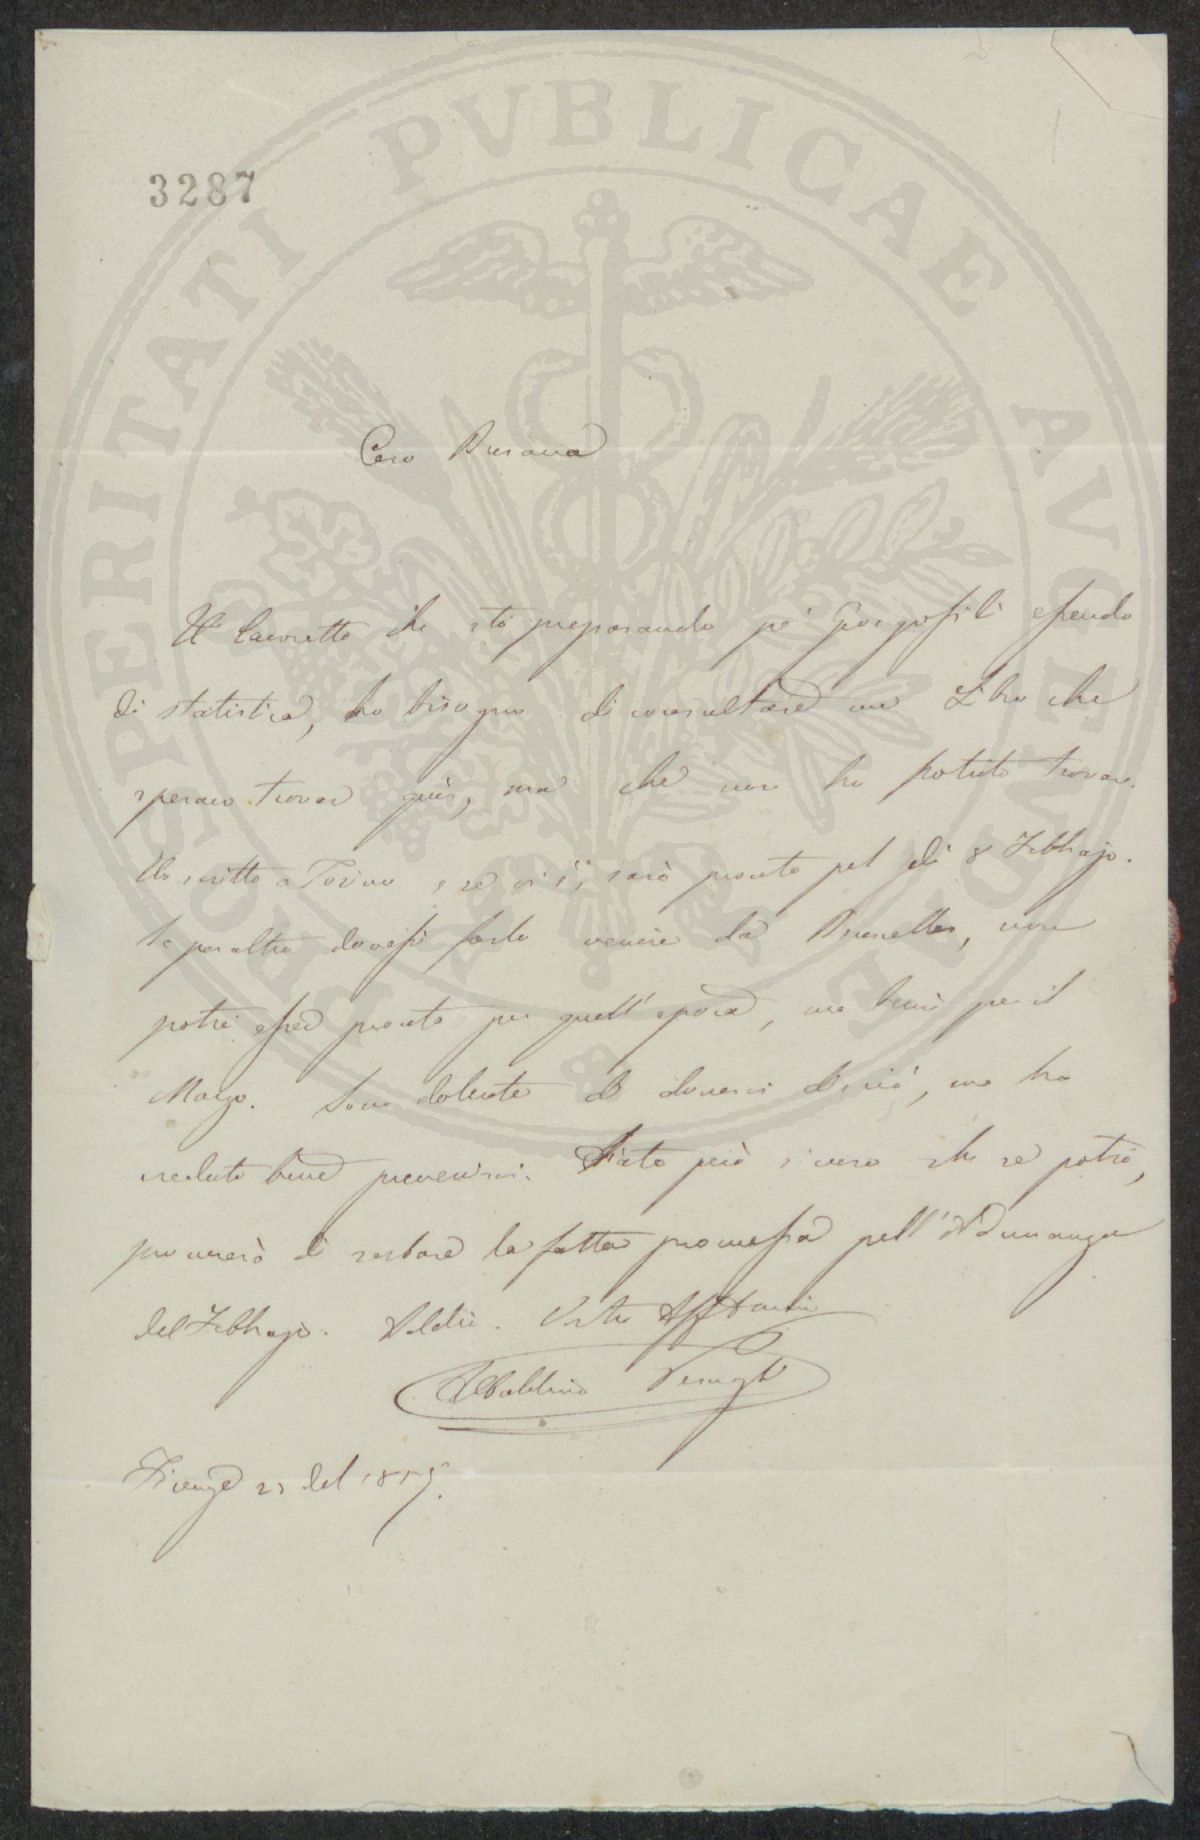 PROSPERITATI PVBLICAE AVGENDAE
3287
Caro Busacca
Il lavoretto che stò preparando pe' Georgofili essendo
di statistica, ho bisogno di consultare un Libro che
speravo trovar quì, ma che non ho potuto trovare.
Ho scritto a Torino, e se vi è, sarò pronto pel dì 8 Febbrajo.
Se peraltro dovessi farlo venire da Bruxelles, non
potrò esser pronto per quell'epoca, ma bensì per il
Marzo. Sono dolente di dovervi dir ciò, ma ho
creduto bene prevenirvi. Siate però sicuro che se potrò,
procurerò di serbare la fatta promessa pell'Adunanza
del Febbrajo. Addio. Vostro Affmo
Ubaldino Peruzzi
Firenze 23 del 1857.